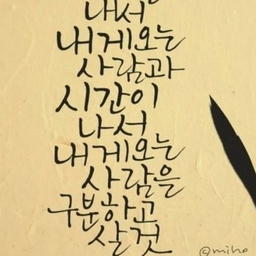 내서
내게오는
사람과
시간이
나서
내게오는
사람을
구분하고
살것
©miho